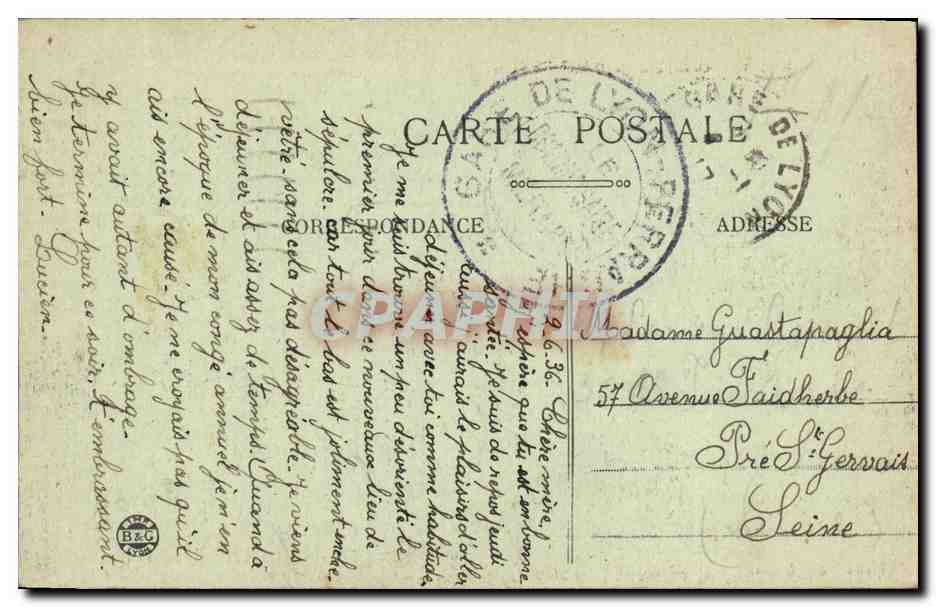 CARTE POSTALE
CORRESPONDANCE
ADRESSE
GARE DE LYON
GARE DE LYON
9.6.36. Chère mère,
j'espère que tu est en bonne
santée. Je suis de repos jeudi
aussi j'aurais le plaisir d'aller
déjeuner avec toi comme habitude.
Je me suis trouvé un peu désorienté le
premier soir dans ce nouveau lieu de
sépulcre. car tout le bas est joliment enche-
vêtré - sans cela pas désagreable. Je viens
déjeuner et ais assez de temps. Quand à
l'époque de mon congé annuel je m'en
ais encore causé. Je ne croyais pas qu'il
y avait autant d'ombrage.
Je termine pour ce soir. T'embrassant
bien fort. Lucien..
Madame Guastapaglia
57 Avenue Faidherbe
Pré St. Gervais
Seine
IMP.
B&G
LYON
CPAPHIL